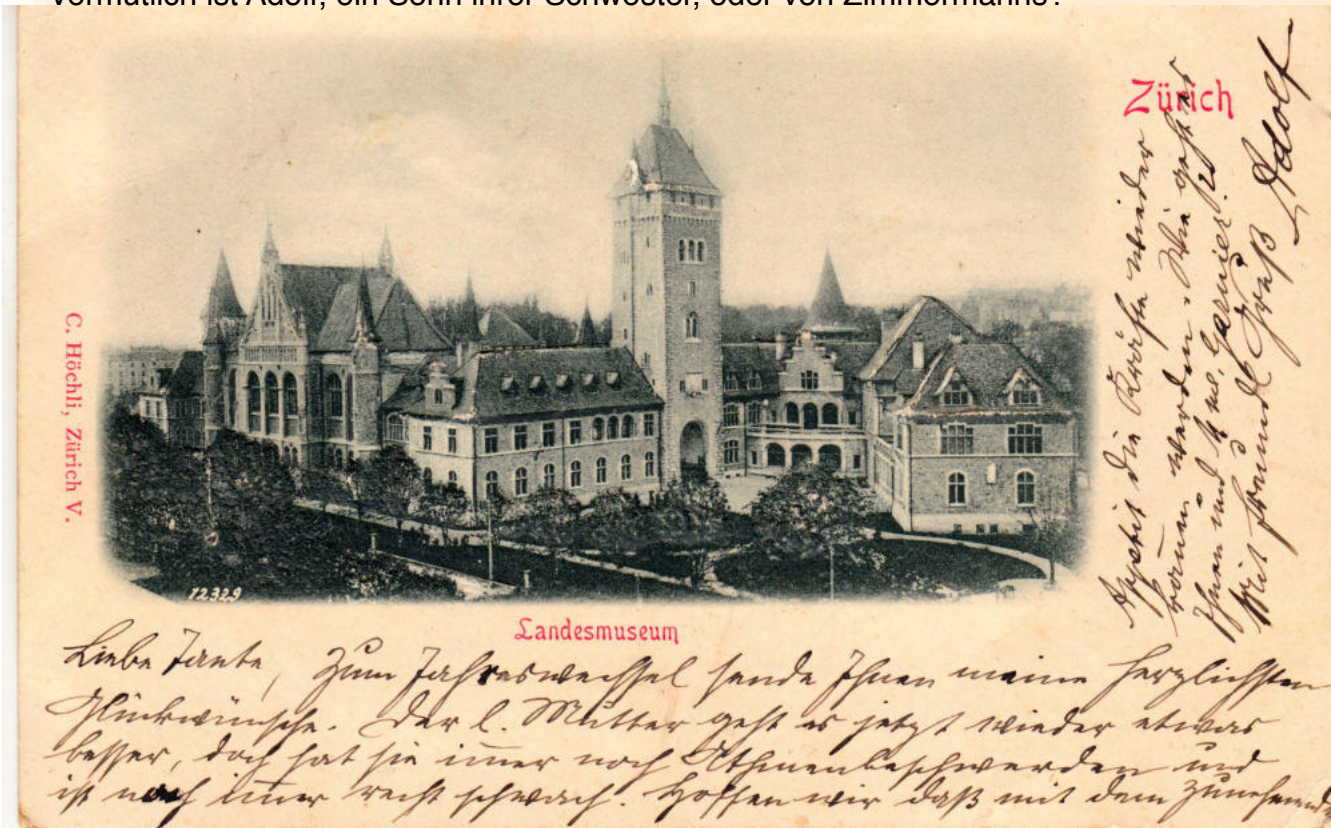 Vermutlich ist Adolf, ein Sohn ihrer Schwester, oder von Zimmermanns?
Zürich
C. Höchli, Zürich V.
12329
Landesmuseum
Liebe Tante, Zum Jahreswechsel sende Ihnen meine herzlichsten
Glückwünsche. Der l. Mutter geht es jetzt wieder etwas
besser, doch hat sie im̅er noch Athmenbeschwerden und
ist noch im̅er recht schwach. Hoffen wir daß mit dem zunehmenden
Appetit die Kräfte wieder
kom̅en werden. Wie geht es
Ihnen und Garnier?
Mit freundl Gruß
Adolf